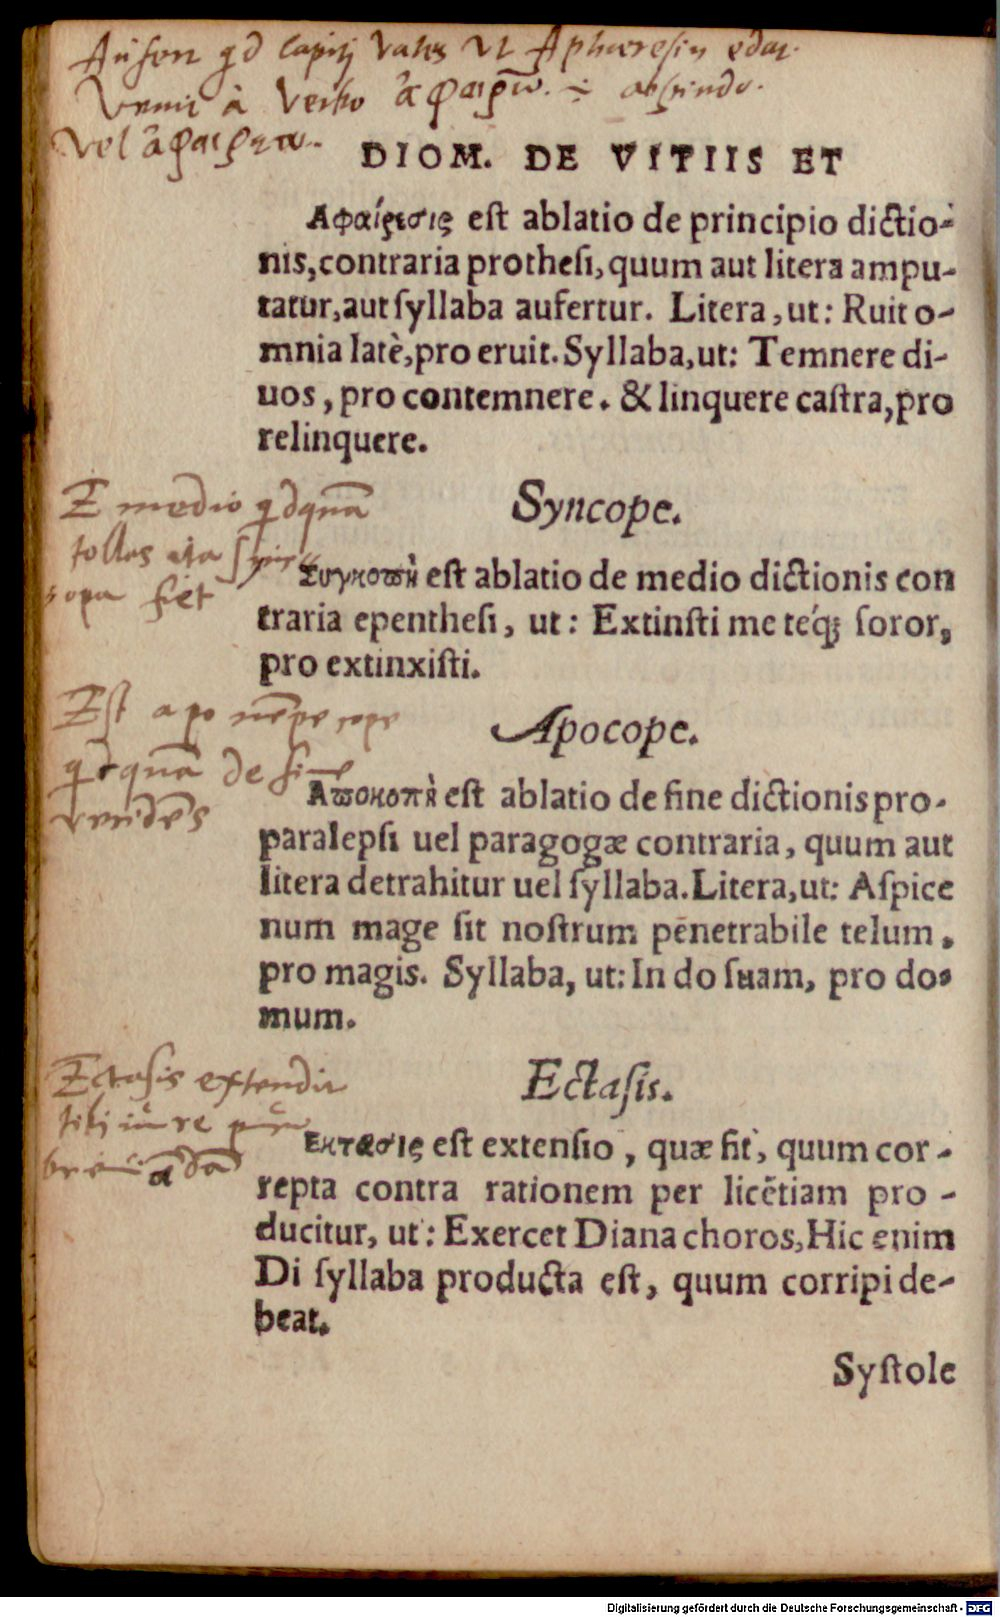 Aufert qd capiti vates ut Aphæresin edat.
Venit à verbo ἀφαιρῶ. i abscindo.
vel ἀφαιρεω.
DIOM. DE VITIIS ET
Αφαίρεσις eſt ablatio de principio dictio-
nis, contraria protheſi, quum aut litera ampu-
tatur, aut ſyllaba aufertur. Litera, ut: Ruit o-
mnia latè, pro eruit. Syllaba, ut: Temnere di-
uos, pro contemnere. & linquere caſtra, pro
relinquere.
E medio qdquā
tolles
fiet
Syncope.
Συγκοπὴ eſt ablatio de medio dictionis con
traria epentheſi, ut: Extinſti me teq́; ſoror,
pro extinxiſti.
Est apo
qdquā de fine
Apocope.
Αποκοπὴ eſt ablatio de fine dictionis pro-
paralepſi uel paragogæ contraria, quum aut
litera detrahitur uel ſyllaba. Litera, ut: Aſpice
num mage ſit noſtrum penetrabile telum,
pro magis. Syllaba, ut: In do ſuam, pro do-
mum.
Ectasis extendit
Ectaſis.
Εκτασις eſt extenſio, quæ fit, quum cor-
repta contra rationem per licētiam pro-
ducitur, ut: Exercet Diana choros, Hic enim
Di ſyllaba producta eſt, quum corripi de-
beat.
Syſtole
Digitalisierung gefördert durch die Deutsche Forschungsgemeinschaft - DFG